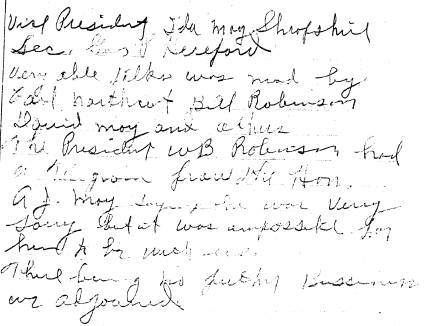 Vice President Ida May Shropshire
Sec. Hereford
Very able talks was mad by
Bill Robinson
David May and others
The President WB Robinson had
a from the Hon.
A J. May saying he was very
sorry but it was impossible for
him to be with
There being no further Bussiness
we adjourned